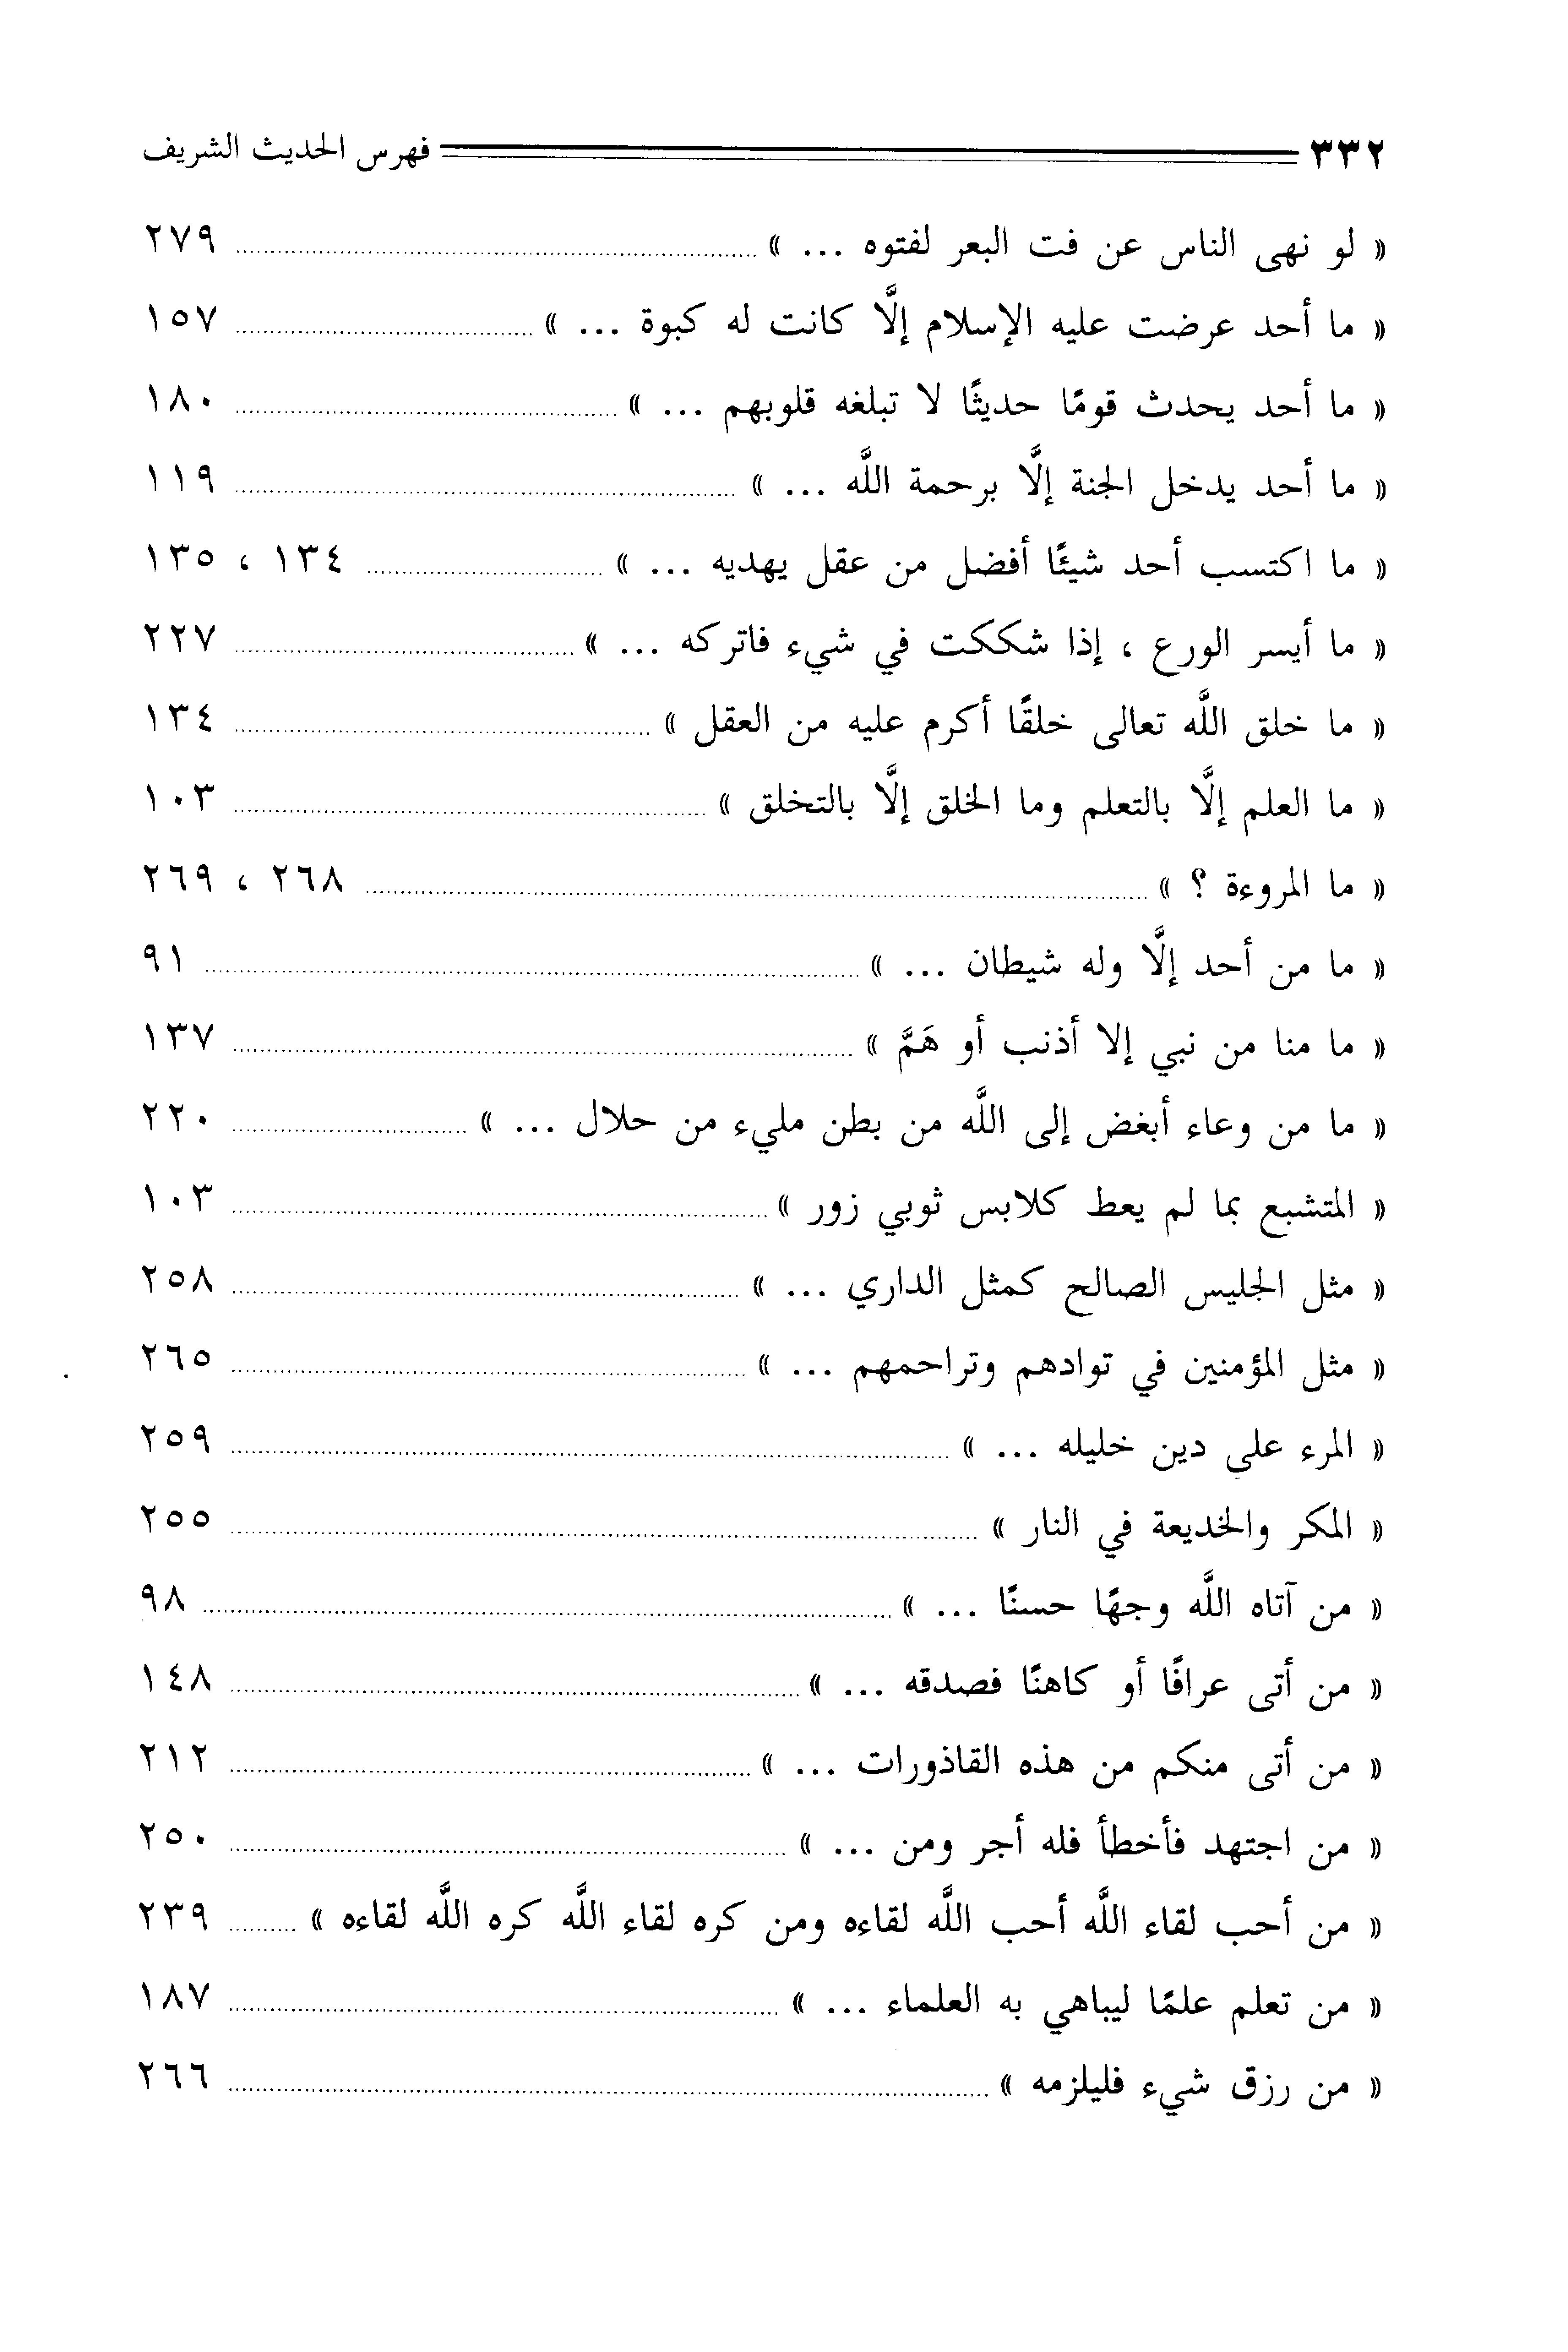 ٣٣٢ فهرس الحديث الشريف
« لو نهى الناس عن فت البعر لفتوه ... » ٢٧٩
« ما أحد عرضت عليه الإسلام إلَّا كانت له كبوة ... » ١٥٧
« ما أحد يحدث قومًا حديثًا لا تبلغه قلوبهم ... » ١٨٠
« ما أحد يدخل الجنة إلَّا برحمة اللَّه ... » ١١٩
« ما اكتسب أحد شيئًا أفضل من عقل يهديه ... » ١٣٤ ، ١٣٥
« ما أيسر الورع ، إذا شككت في شيء فاتركه ... » ٢٢٧
« ما خلق اللَّه تعالى خلقًا أكرم عليه من العقل » ١٣٤
« ما العلم إلَّا بالتعلم وما الخلق إلَّا بالتخلق » ١٠٣
« ما المروءة ؟ » ٢٦٨ ، ٢٦٩
« ما من أحد إلَّا وله شيطان ... » ٩١
« ما منا من نبي إلا أذنب أو هَمَّ » ١٣٧
« ما من وعاء أبغض إلى اللَّه من بطن مليء من حلال ... » ٢٢٠
« المتشبع بما لم يعط كلابس ثوبي زور » ١٠٣
« مثل الجليس الصالح كمثل الداري ... » ٢٥٨
« مثل المؤمنين في توادهم وتراحمهم ... » ٢٦٥
« المرء على دين خليله ... » ٢٥٩
« المكر والخديعة في النار » ٢٥٥
« من آتاه اللَّه وجهًا حسنًا ... » ٩٨
« من أتى عرافًا أو كاهنًا فصدقه ... » ١٤٨
« من أتى منكم من هذه القاذورات ... » ٢١٢
« من اجتهد فأخطأ فله أجر ومن ... » ٢٥٠
« من أحب لقاء اللَّه أحب اللَّه لقاءه ومن كره لقاء اللَّه كره اللَّه لقاءه » ٢٣٩
« من تعلم علمًا ليباهي به العلماء ... » ١٨٧
« من رزق شيء فليلزمه » ٢٦٦